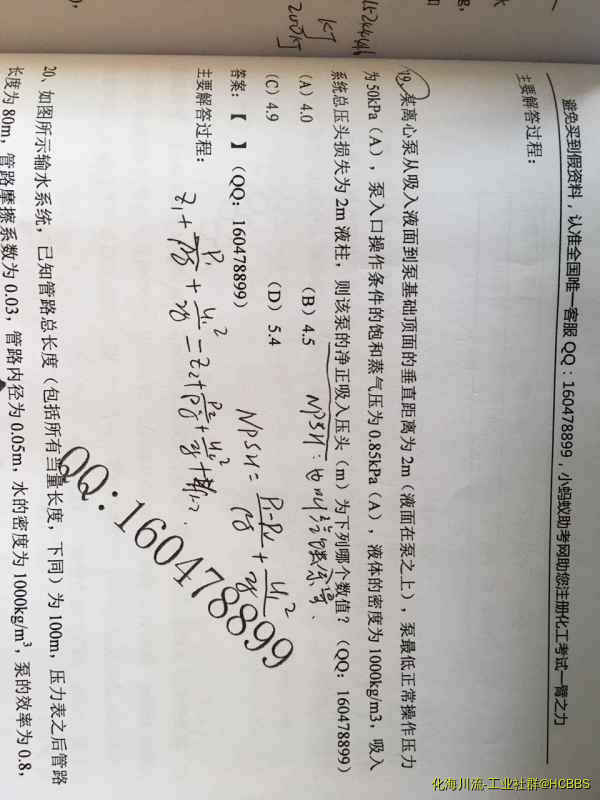 避免买到假资料，认准全国唯一客服 QQ：160478899，小蚂蚁助考网助您注册化工考试一臂之力
主要解答过程：
19、某离心泵从吸入液面到泵基础顶面的垂直距离为 2m（液面在泵之上），泵最低正常操作压力
为 50kPa（A），泵入口操作条件的饱和蒸气压为 0.85kPa（A），液体的密度为 1000kg/m3，吸入
系统总压头损失为 2m 液柱，则该泵的净正吸入压头（m）为下列哪个数值？（QQ：160478899）
（A）4.0
（B）4.5
NPSH：也叫
（C）4.9
（D）5.4
答案：【 】（QQ：160478899）
NPSH = P1-Pv/ρg + u1²/2g
主要解答过程：
Z1 + P1/ρg + u1²/2g = Z2 + P2/ρg + u2²/2g + Hf1-2
20、如图所示输水系统，已知管路总长度（包括所有当量长度，下同）为 100m，压力表之后管路
长度为 80m，管路摩擦系数为 0.03，管路内径为 0.05m，水的密度为 1000kg/m³，泵的效率为 0.8，
QQ：160478899
kJ
200kJ
化海川流-工业社群@HCBBS